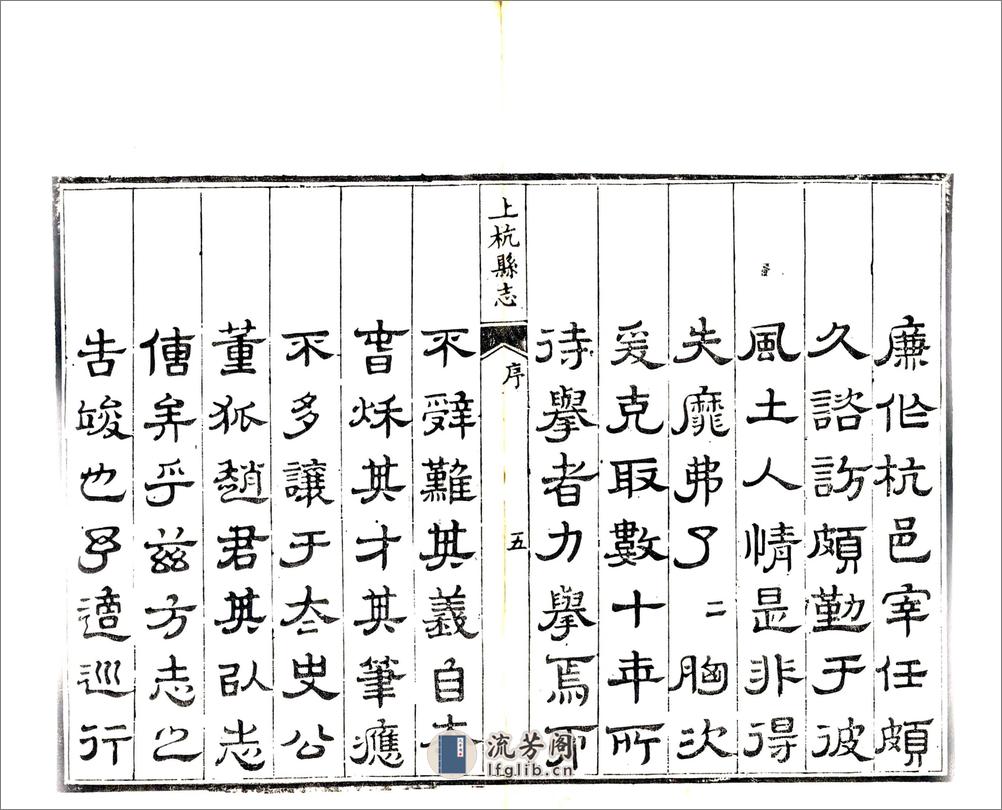 廉作杭邑宰任頗
久諮訪頗勤于彼
風土人情是非得
失靡弗了二胸次
爰克取數十年所
待舉者力舉焉而
上杭縣志
序
五
不辭難其義自
其才其筆應
不多讓于太史公
董狐趙君其以志
傳矣乎茲方志之
告竣也予適巡行
流芳阁
lfglib.cn